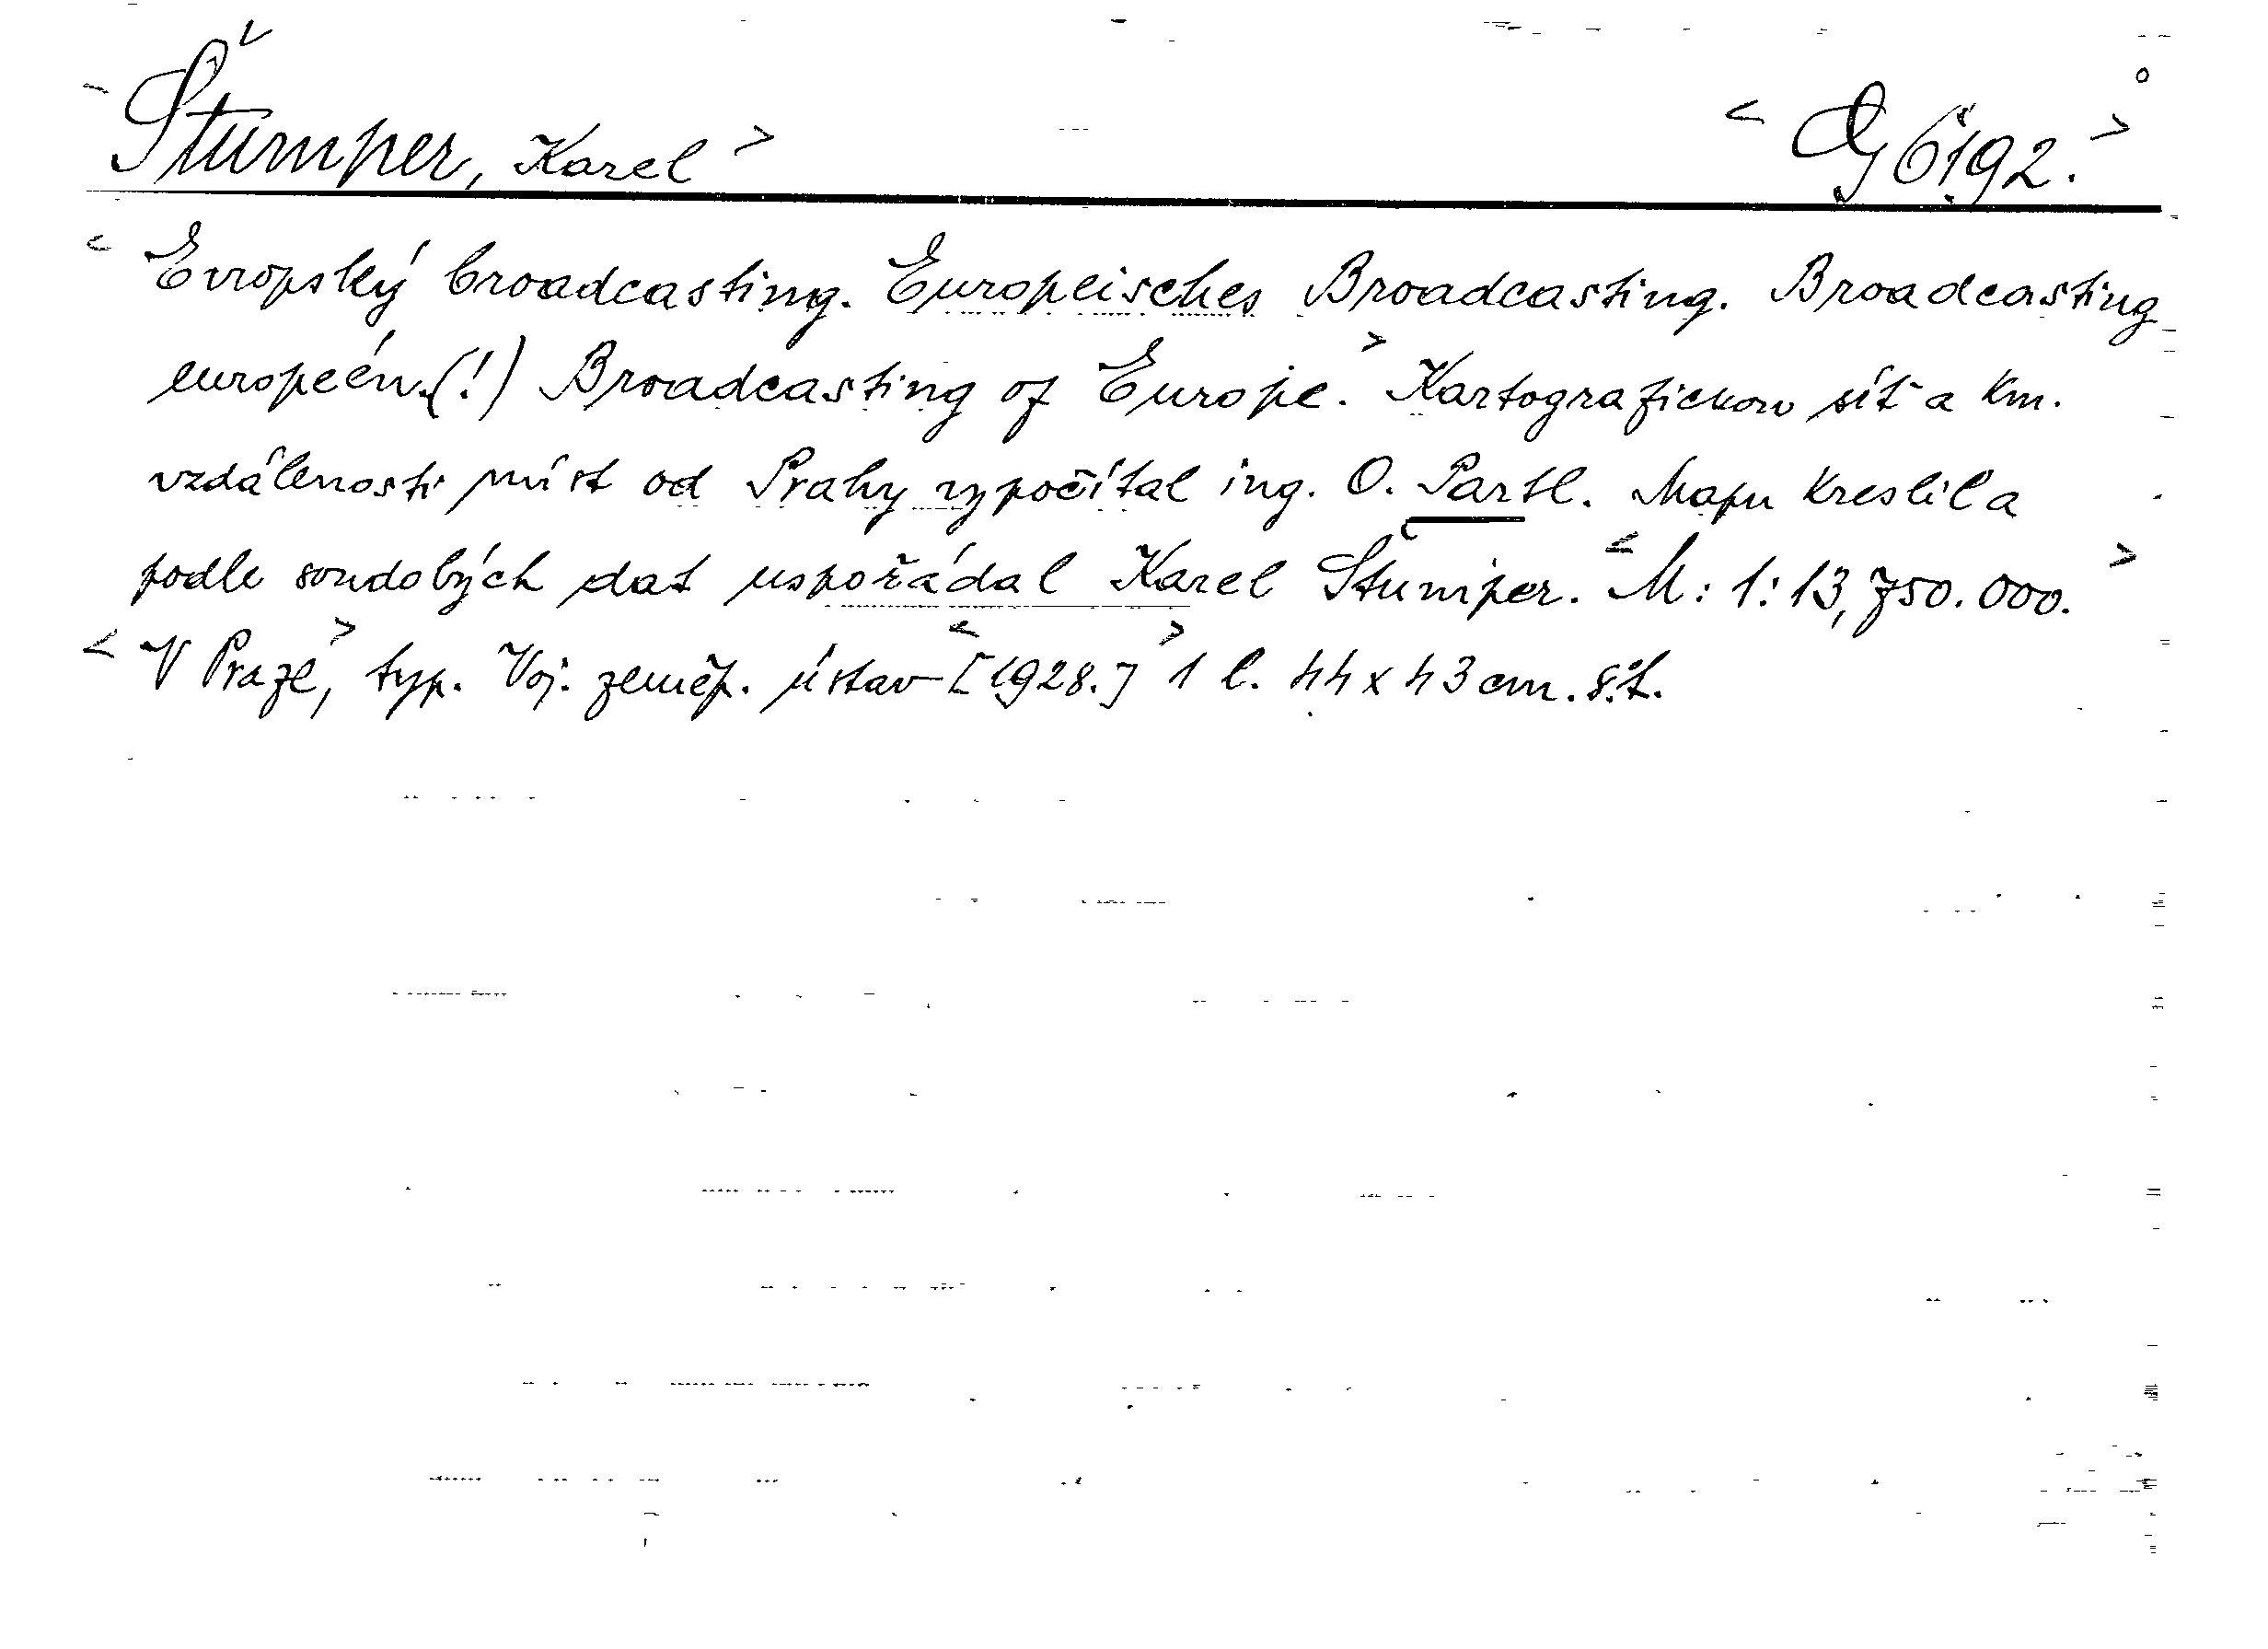 < Štumper, Karel > < Qg 6192. >
< Evropský broadcasting. Europeisches Broadcasting. Broadcasting
européen.(!) Broadcasting of Europe. > Kartografickou síť a km.
vzdálenosti míst od Prahy vypočítal ing. O. Partl. Mapu kreslil a
podle soudobých dat uspořádal Karel Štumper. < M: 1:13,750.000. >
< V Praze, > typ. Voj. zeměp. ústav < [1928.] > 1 l. 44 x 43 cm. š.t.